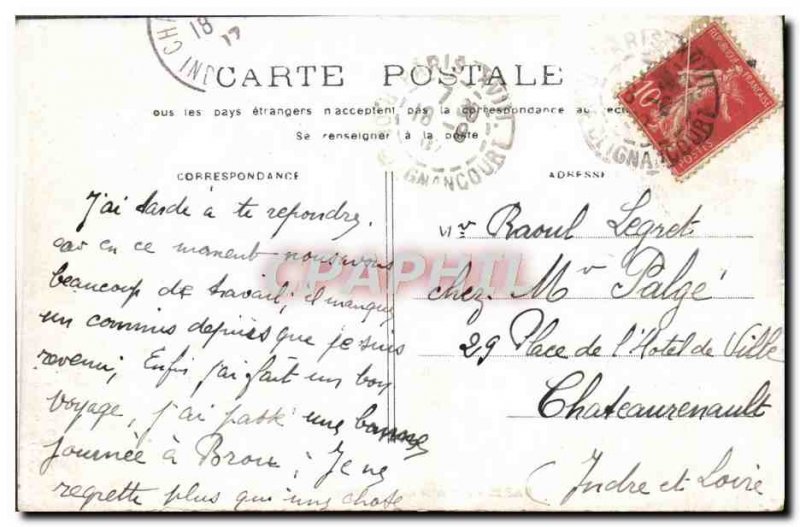 CARTE POSTALE
ous les pays étrangers n'acceptent pas la correspondance au recto
Se renseigner à la poste
CORRESPONDANCE
ADRESSE
J'ai tardé à te repondre,
car en ce moment nous avons
beaucoup de travail; il manque
un commis depuis que je suis
revenu; Enfin j'ai fait un bon
voyage, j'ai passé une bonne
journée à Brou; Je ne
regrette plus qu'une chose
Mr Raoul Legret
chez Mr Palgé
29 Place de l'Hotel de Ville
Chateaurenault
Indre et Loire
CPAPHIL
PARIS
CLIGNANCOURT
REPUBLIQUE FRANCAISE
10c
POSTES
PARIS
CLIGNANCOURT
18